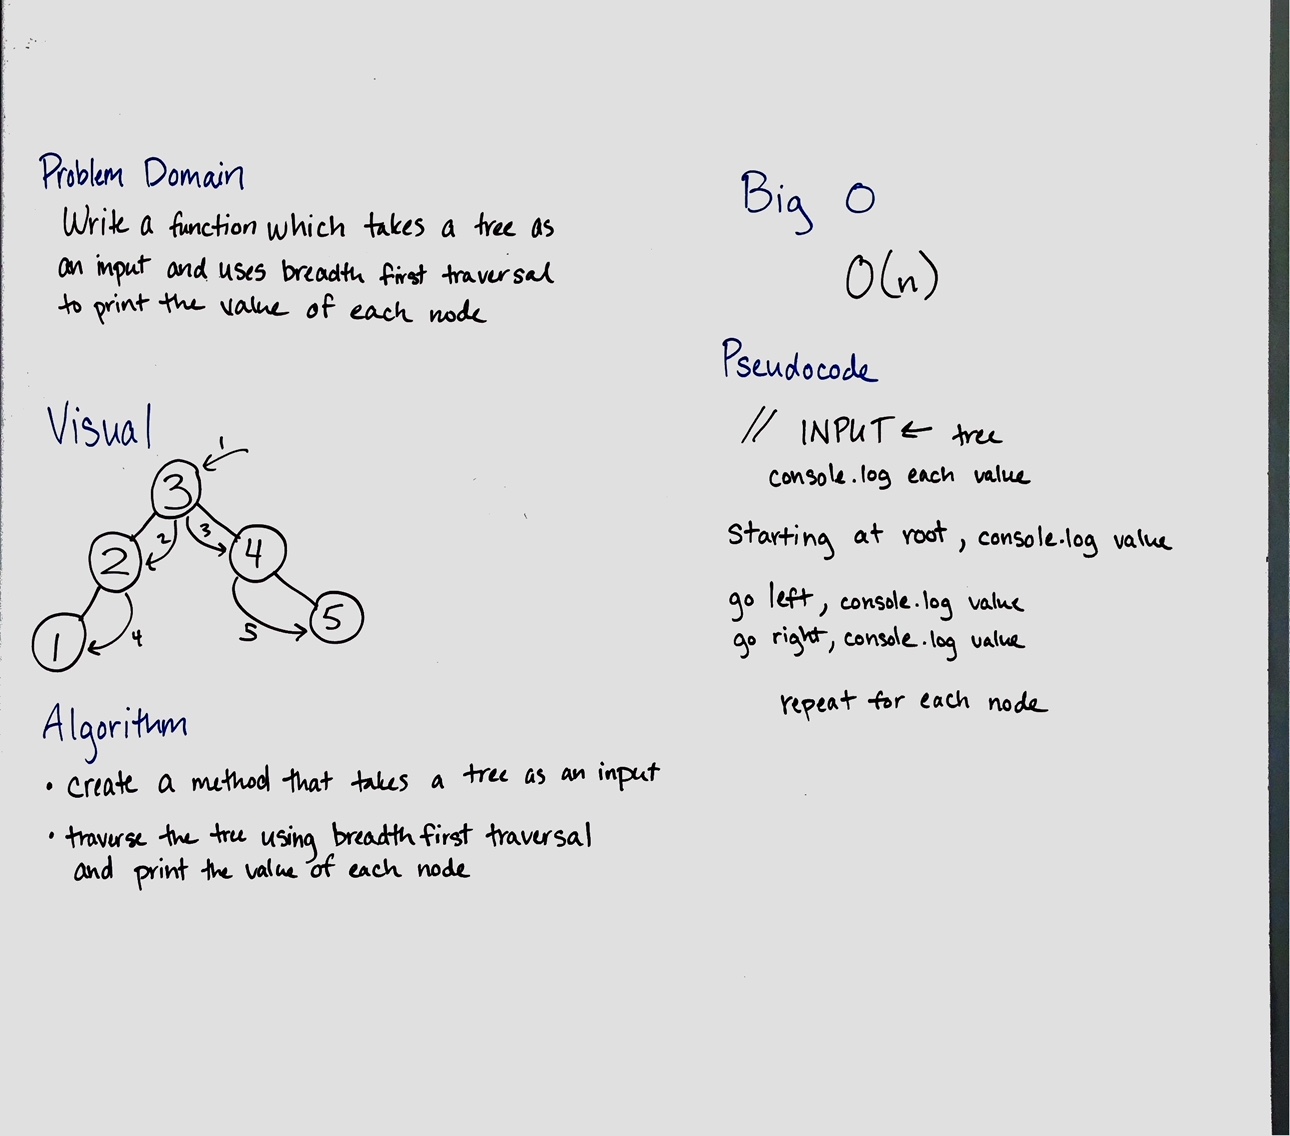 Problem Domain
Write a function which takes a tree as
an input and uses breadth first traversal
to print the value of each node
Visual
1
3
2
3
2
4
1
4
5
5
Algorithm
• create a method that takes a tree as an input
• traverse the tree using breadth first traversal
and print the value of each node
Big O
O(n)
Pseudocode
// INPUT ← tree
console.log each value
Starting at root, console.log value
go left, console.log value
go right, console.log value
repeat for each node